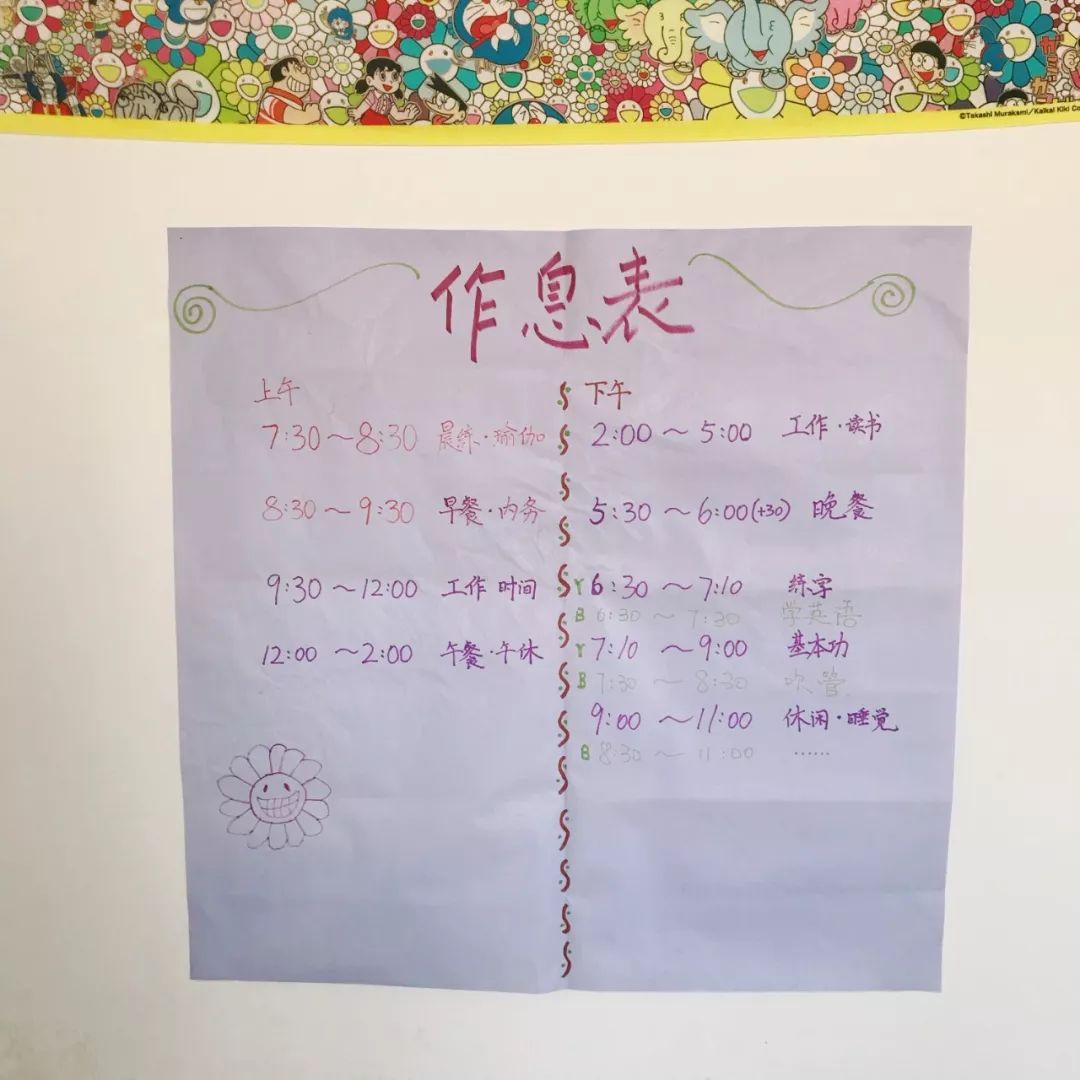 ©Takashi Murakami/Kaikai Kiki Co
作息表
上午
7:30～8:30 晨练·瑜伽
8:30～9:30 早餐·内务
9:30～12:00 工作 时间
12:00～2:00 午餐·午休
下午
2:00～5:00 工作·读书
5:30～6:00(+30) 晚餐
Y 6:30～7:10 练字
B 6:30～7:30 学英语
Y 7:10～9:00 基本功
B 7:30～8:30 吹管
9:00～11:00 休闲·睡觉
B 8:30～11:00 ……